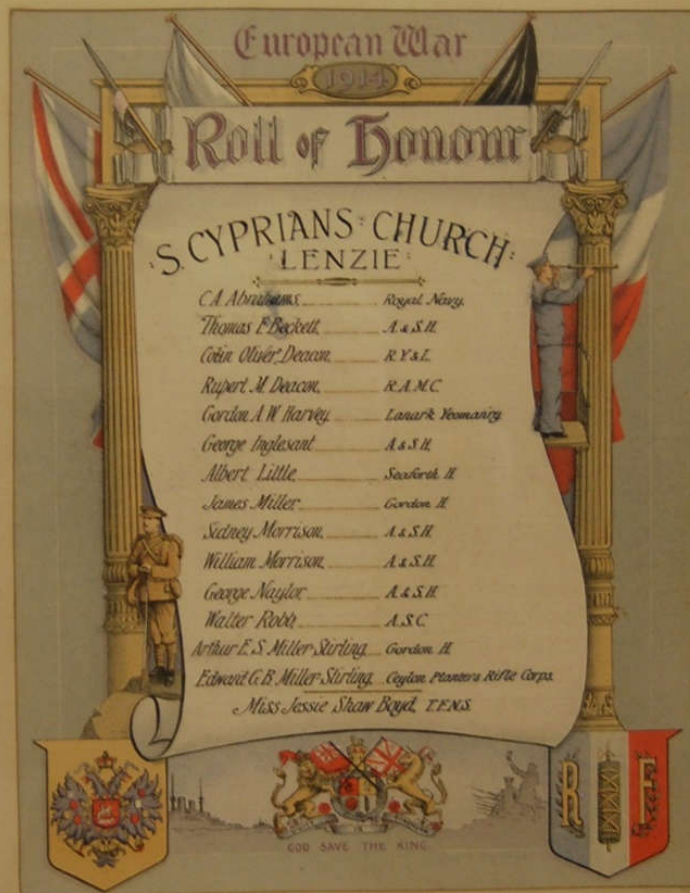 European War
1914
Roll of Honour
S. CYPRIANS CHURCH
LENZIE
C. A. Abrahams. Royal Navy.
Thomas F. Beckett. A. & S. H.
Colin Oliver Deacon. R. Y. & L.
Rupert M. Deacon. R. A. M. C.
Gordon A. W. Harvey. Lanark Yeomanry
George Inglesant A. & S. H.
Albert Little. Seaforth H.
James Miller. Gordon H.
Sidney Morrison. A. & S. H.
William Morrison. A. & S. H.
George Naylor. A. & S. H.
Walter Robb. A. S. C.
Arthur E. S. Miller Stirling. Gordon H.
Edward G. B. Miller Stirling. Ceylon Planters Rifle Corps.
Miss Jessie Shaw Boyd, T.F.N.S.
R F
GOD SAVE THE KING